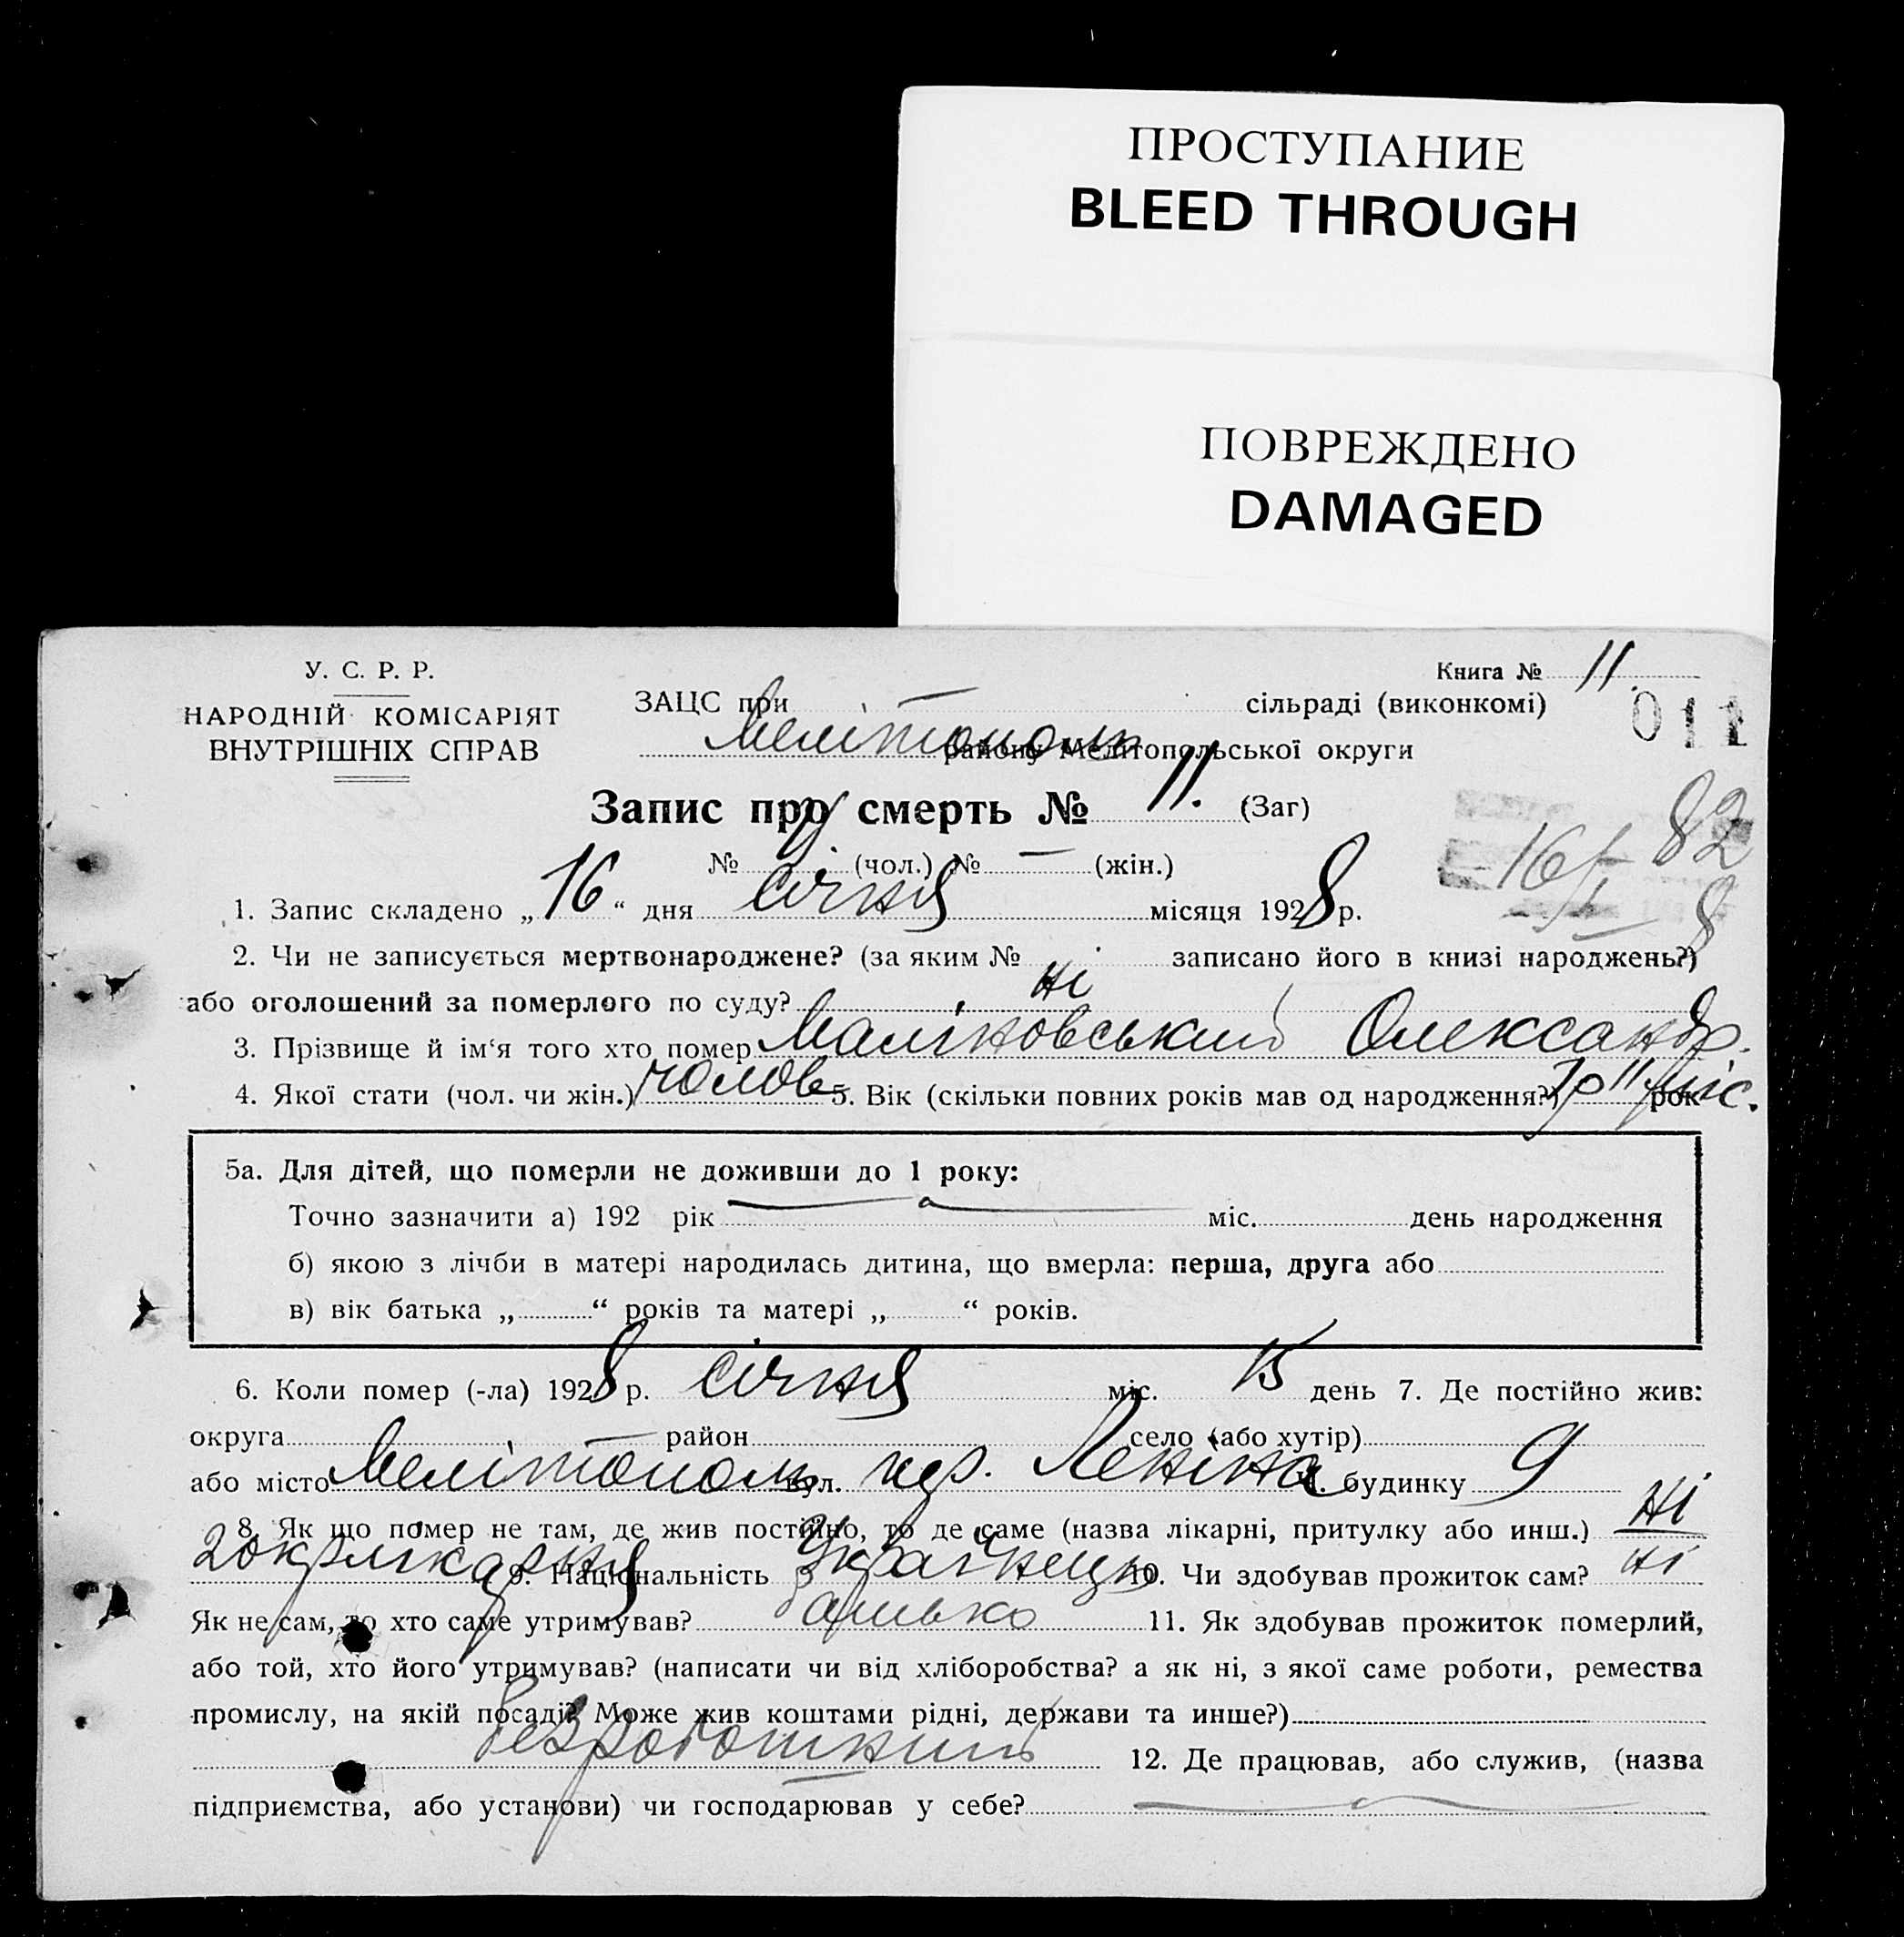 ПРОСТУПАНИЕ
BLEED THROUGH
ПОВРЕЖДЕНО
DAMAGED
У. С. Р. Р.
НАРОДНІЙ КОМІСАРІЯТ
ВНУТРІШНІХ СПРАВ
Книга № 11.
011
ЗАЦС при — сільраді (виконкомі)
Мелітополь району Мелітопольської округи
Запис про смерть № 11. (Заг)
82
№ (чол.) № — (жін.)
16/I 8
1. Запис складено „16“ дня січня місяця 1928 р.
2. Чи не записується мертвонароджене? (за яким № записано його в книзі народжень?)
або оголошений за померлого по суду? ні
3. Прізвище й ім‘я того хто помер Маліновський Олександр.
4. Якої стати (чол. чи жін.) чолов 5. Вік (скільки повних років мав од народження?) рок 11 міс.
5а. Для дітей, що померли не доживши до 1 року:
Точно зазначити а) 192 рік міс. день народження
б) якою з лічби в матері народилась дитина, що вмерла: перша, друга або
в) вік батька „ “ років та матері „ “ років.
6. Коли помер (-ла) 1928 р. січня міс. 15 день 7. Де постійно жив:
округа район село (або хутір)
або місто Мелітополь вул. Леніна № будинку 9
8. Як що помер не там, де жив постійно, то де саме (назва лікарні, притулку або инш.) ні
9. Національність Українець 10. Чи здобував прожиток сам? ні
Як не сам, то хто саме утримував? батько 11. Як здобував прожиток померлий,
або той, хто його утримував? (написати чи від хліборобства? а як ні, з якої саме роботи, ремества
промислу, на якій посаді? Може жив коштами рідні, держави та инше?)
безроботний 12. Де працював, або служив, (назва
підприємства, або установи) чи господарював у себе? —